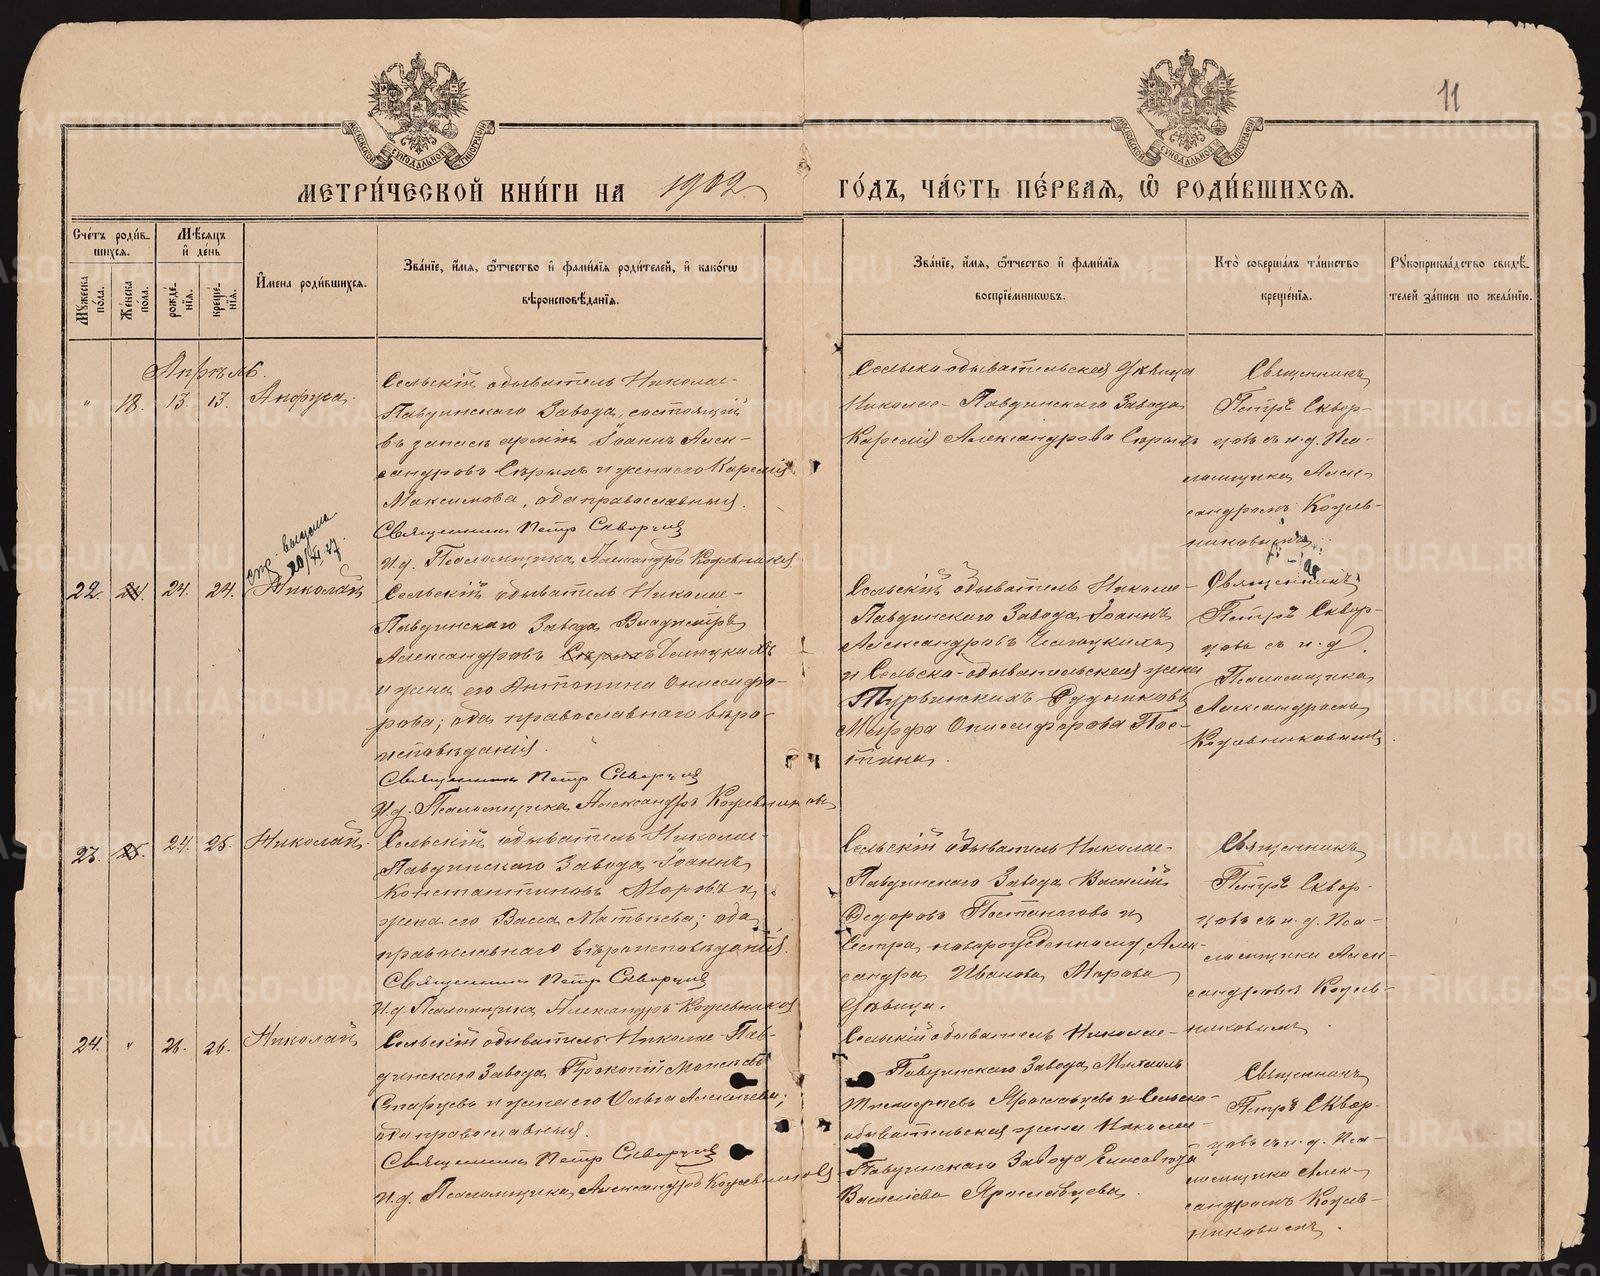 11
МОСКОВСКОЙ СУНОДАЛЬНОЙ ТИПОГРАФІИ
МОСКОВСКОЙ СУНОДАЛЬНОЙ ТИПОГРАФІИ
МЕТРИ́ЧЕСКОЙ КНИ́ГИ НА 1902 ГО́ДЪ, ЧА́СТЬ ПЕ́РВАѦ, Ѽ РОДИ́ВШИХСѦ.
Сче́тъ роди́в-
шихсѧ.
Мꙋжеска по́ла.
Же́нска по́ла.
Мѣ́сѧцъ
и҆ де́нь
рожде́-
нїѧ.
креще́-
нїѧ.
И҆мена роди́вшихсѧ.
Зва́нїе, и҆́мѧ, ѻ҆́тчество и҆ фами́лїѧ роди́телей, и҆ како́гѡ
вѣроисповѣ́данїѧ.
Зва́нїе, и҆́мѧ, ѻ҆́тчество и҆ фами́лїѧ
воспрїе́мникѡвъ.
Кто̀ соверша́лъ та́инство
креще́нїѧ.
Рꙋкоприкла́дство свидѣ́-
телей за́писи по жела́нїю.
Апрѣль
" 18. 13. 13. Анфуса.
Сельскій обыватель Николае-
Павдинскаго Завода, состоящій
въ запасѣ арміи Іоаннъ Алек-
сандровъ Сѣрыхъ и жена его
Максимова, оба православныя.
Священникъ Петр Скворцов
И.д. Псаломщика Александръ Кожевников
Сельско-обывательская дѣвица
Николае-Павдинскаго Завода
Александрова Сѣрыхъ
Священникъ
Петръ Сквор-
цовъ съ и.д. Пса-
ломщика Алек-
сандромъ Кожев-
никовымъ
выдана
20/XI
22. 24. 24. 24. Николай
Сельскій обыватель Николае-
Павдинскаго Завода Владиміръ
Александровъ Сѣрыхъ
и жена его Антонина Онисифо-
рова; оба православнаго вѣро-
исповѣданія.
Священникъ Петр Скворцов
И.д. Псаломщика Александръ Кожевников
Сельскій обыватель Николае-
Павдинскаго Завода Іоаннъ
Александровъ
и Сельско-обывательская жена
Турьинскихъ Рудниковъ
Марфа Онисифорова Пос-
тина.
Священникъ
Петръ Сквор-
цовъ съ и.д.
Псаломщика
Александромъ
Кожевниковымъ.
23. 25. 24. 25. Николай.
Сельскій обыватель Николае-
Павдинскаго Завода Іоаннъ
Константиновъ Моровъ и
жена его Васса Матѳеева; оба
православнаго вѣроисповѣданія.
Священникъ Петр Скворцов
И.д. Псаломщика Александръ Кожевников
Сельскій обыватель Николае-
Павдинскаго Завода Василій
Ѳедоровъ Постоноговъ и
Сестра новорожденному Алек-
сандра Иванова Морова
дѣвица.
Священникъ
Петръ Сквор-
цовъ съ и.д. Пса-
ломщика Алек-
сандромъ Кожев-
никовымъ.
24. " 26. 26. Николай
Сельскій обыватель Николае-Пав-
динскаго Завода Прокопій
Старцевъ и жена его Ольга Алексѣева;
оба православныя.
Священникъ Петр Скворцов
И.д. Псаломщика Александръ Кожевников
Сельскій обыватель Николае-
Павдинскаго Завода Михаилъ
Тимофеевъ Ярославцевъ и Сельско-
обывательская жена Николае-
Павдинскаго Завода Елисавета
Василіева Ярославцева.
Священникъ
Петръ Сквор-
цовъ съ и.д. Пса-
ломщика Алек-
сандромъ Кожев-
никовымъ.
METRIKI.GASO-URAL.RU